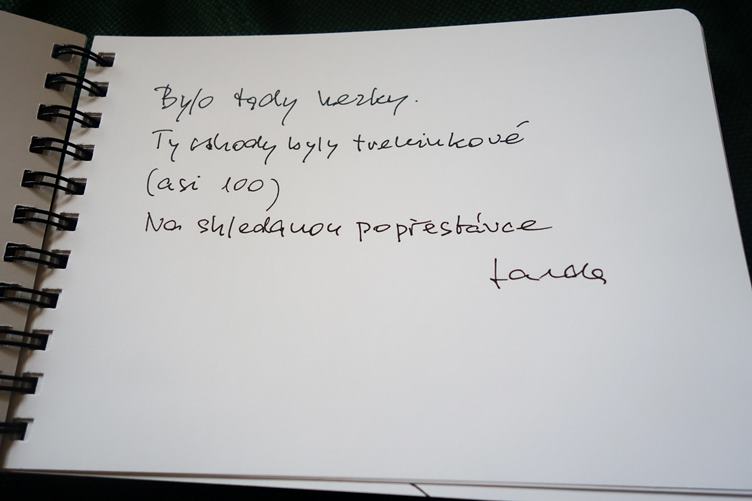 Bylo tady hezky.
Ty schody byly tréninkové
(asi 100)
Na shledanou po přestávce